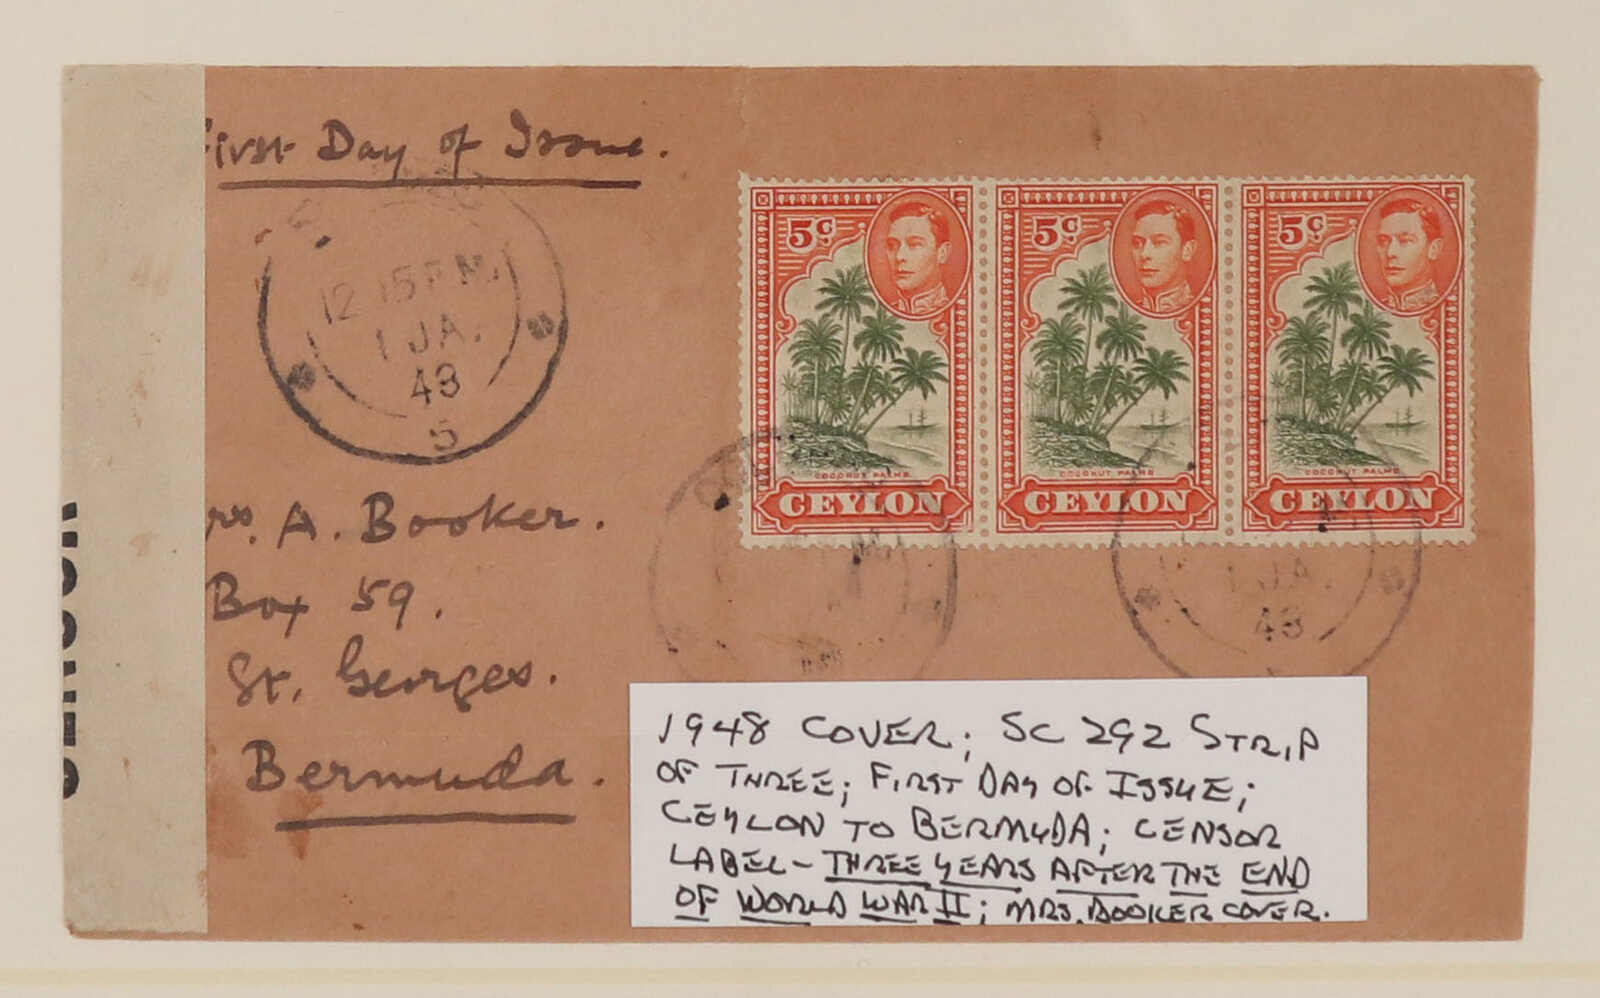 First Day of Issue.
12 15 PM.
1 JA.
43
5
rs. A. Booker.
Box 59.
St. Georges.
Bermuda.
5¢ 5¢ 5¢
COCONUT PALMS COCONUT PALMS COCONUT PALMS
CEYLON CEYLON CEYLON
1 JA.
43
1948 COVER; SC 292 STRIP
OF THREE; FIRST DAY OF ISSUE;
CEYLON TO BERMUDA; CENSOR
LABEL - THREE YEARS AFTER THE END
OF WORLD WAR II; MRS. BOOKER COVER.